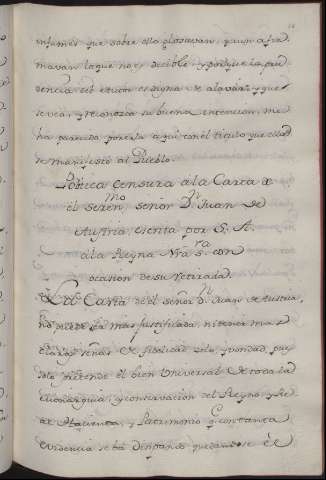 infamês que sobre ella glosavan, que un afir-
mavan lo que no es decible; y porque la pru-
dencia es digna de alavar y que
se vea, y reconozca su buena intencion, me
ha parecido ponerla aqui con el titulo que ella
se manifestó al Pueblo.
Politica censura á la Carta de
el seren.mo señor D.n Juan de
Austria, escrita por S. A.
á la Reyna Nra S.ra con
ocasion de su retirada.
La Carta de el señor D.n Juan de Austria,
no puede ser mas justificada, ni tener mas
claras señas de fidelidad, zelo, y bondad, pues
solo pretende el bien universal de toda la
Monarquia, y conservacion del Reyno, y Re-
al Hacienda, y Patrimonio q. con tanta
evidencia se va desipando quedandose de el